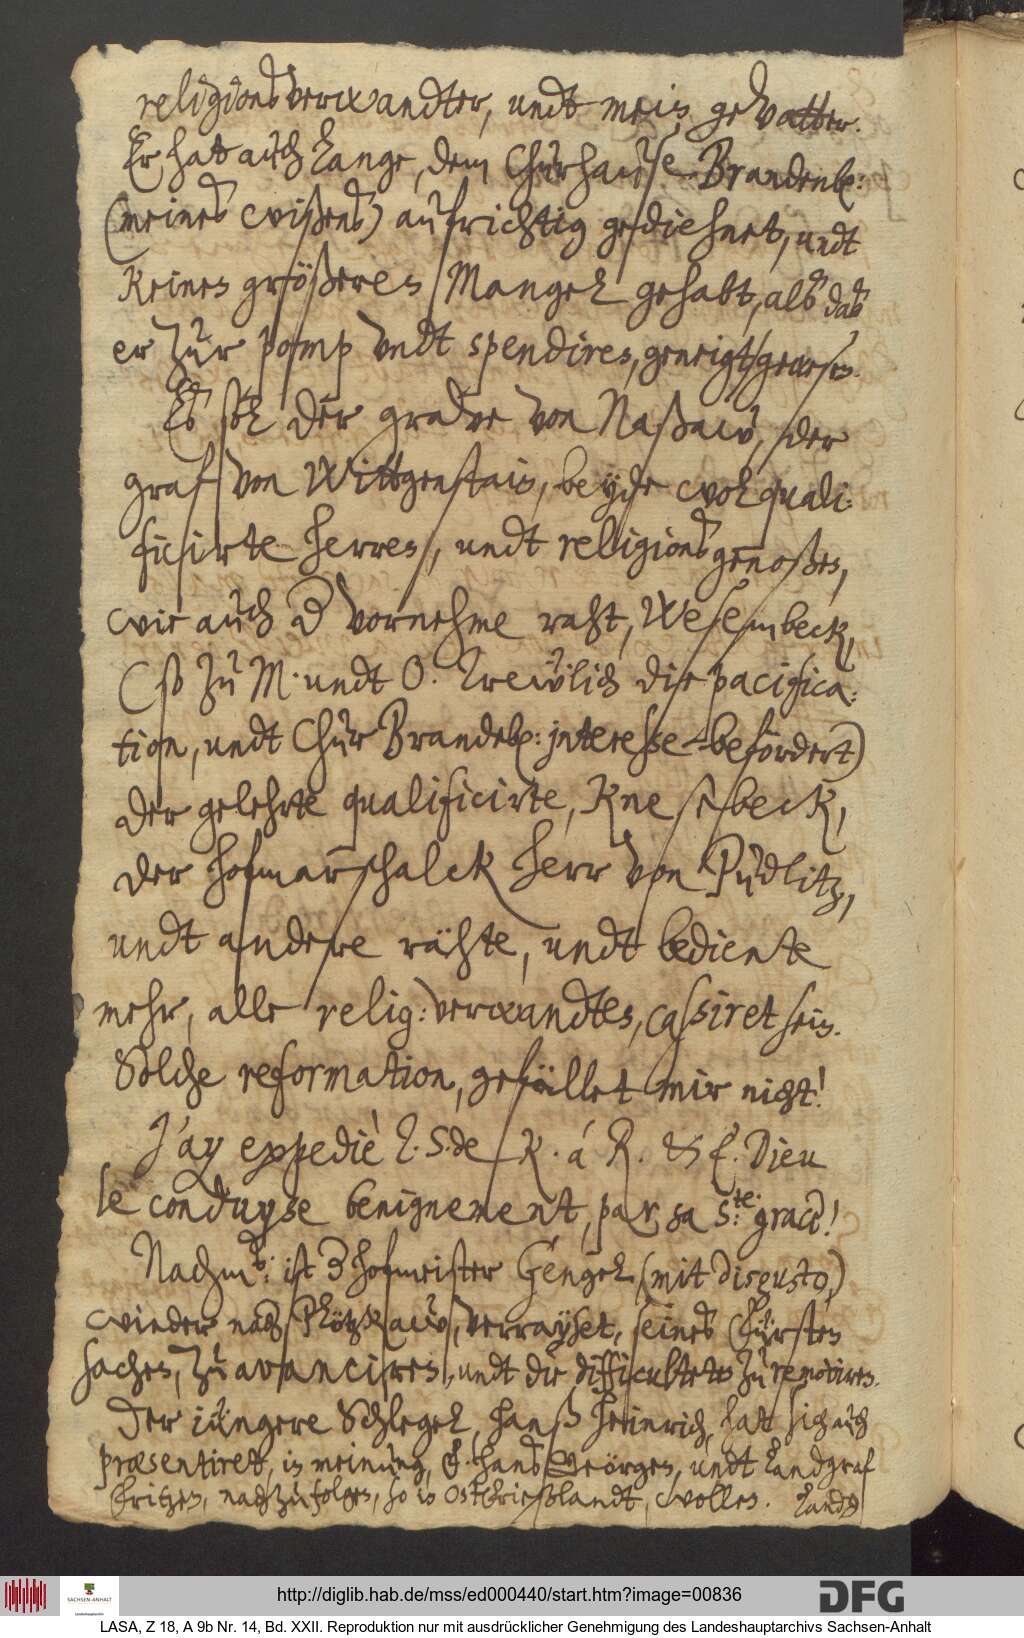 religionsverwandter, undt mein gevatter.
Er hat auch lange, dem Churhause Brandenb:
(meines wißens) aufrichtig gediehnet, undt
keinen größeren Mangel gehabt, alß daß
er zur pomp undt spendiren, geneigt gewesen.
Es sol der grave von Naßaw, der
graf von Wittgenstain, beyde wol quali-
ficirte herren, undt religionsgenoßen,
wie auch der vornehme raht, Wesembeck,
(so zu M. undt O. trewlich die pacifica-
tion, undt Chur Brandeb: interesse befördert)
der gelehrte qualificirte, Knesebeck,
der hofmarschalck herr von Pudlitz,
undt andere rähte, undt bediente
mehr, alle relig: verwandten, cassiret sein.
Solche reformation, gefället mir nicht!
J'ay expediè l. S. de K. á R. & E. Dieu
le conduyse benignement, par sa S:te grace!
Nachm: ist der hofmeister Gengel (mit disgusto,)
wieder nach Plötzkaw, verrayset, seines Fürsten
sachen, zu avanciren, undt die difficulteten zu removiren.
Der iüngere Schlegel, Hanß Heinrich, hatt sich auch
præsentiret, in meinung, F. Hans Geörgen, undt Landgraf
Fritzen, nachzufolgen, so in Ostfrießlandt, wollen. Landg
http://diglib.hab.de/mss/ed000440/start.htm?image=00836
DFG
SACHSEN-ANHALT
LASA, Z 18, A 9b Nr. 14, Bd. XXII. Reproduktion nur mit ausdrücklicher Genehmigung des Landeshauptarchivs Sachsen-Anhalt